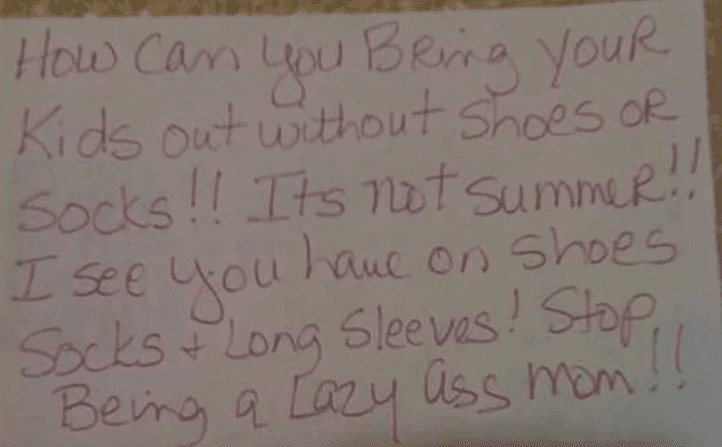 How Can you Bring YouR
Kids out without Shoes oR
Socks!! Its not SummeR!!
I see you have on Shoes
Socks + Long Sleeves! Stop
Being a Lazy ass mom!!